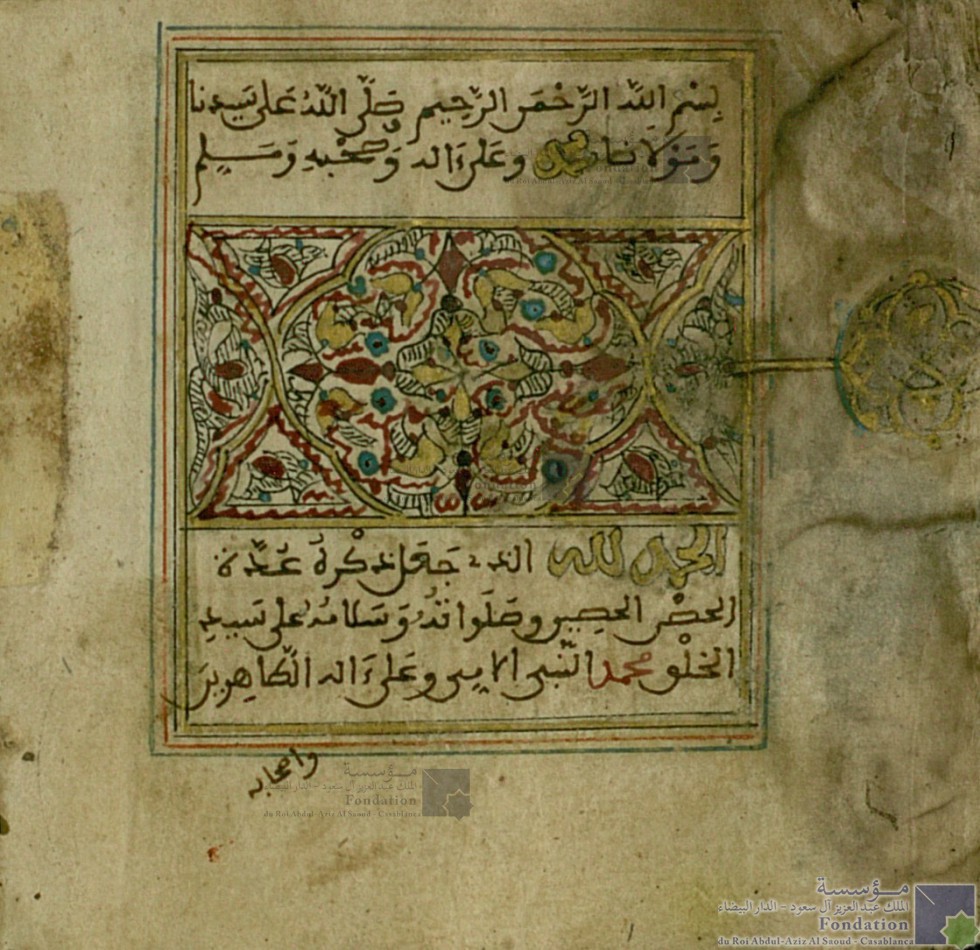 بِسْمِ اللَّهِ الرَّحْمَنِ الرَّحِيمِ صَلَّى اللَّهُ عَلَى سَيِّدِنَا
وَمَوْلَانَا مُحَمَّدٍ وَعَلَى ءَالِهِ وَصَحْبِهِ وَسَلِّم
الحمد لله الذي جَعَلَ ذِكْرَهُ عُدَّة
الحصن الحصين وصَلَوَاتُهُ وَسَلَامُهُ عَلَى سَيِّدِ
الخَلْقِ محمد النَّبِي الامين وعَلَى ءَالِهِ الطَّاهِرِينَ
واصحابه
مؤسسة
الملك عبد العزيز آل سعود - الدار البيضاء
Fondation
du Roi Abdul-Aziz Al Saoud - Casablanca
مؤسسة
الملك عبد العزيز آل سعود - الدار البيضاء
Fondation
du Roi Abdul-Aziz Al Saoud - Casablanca